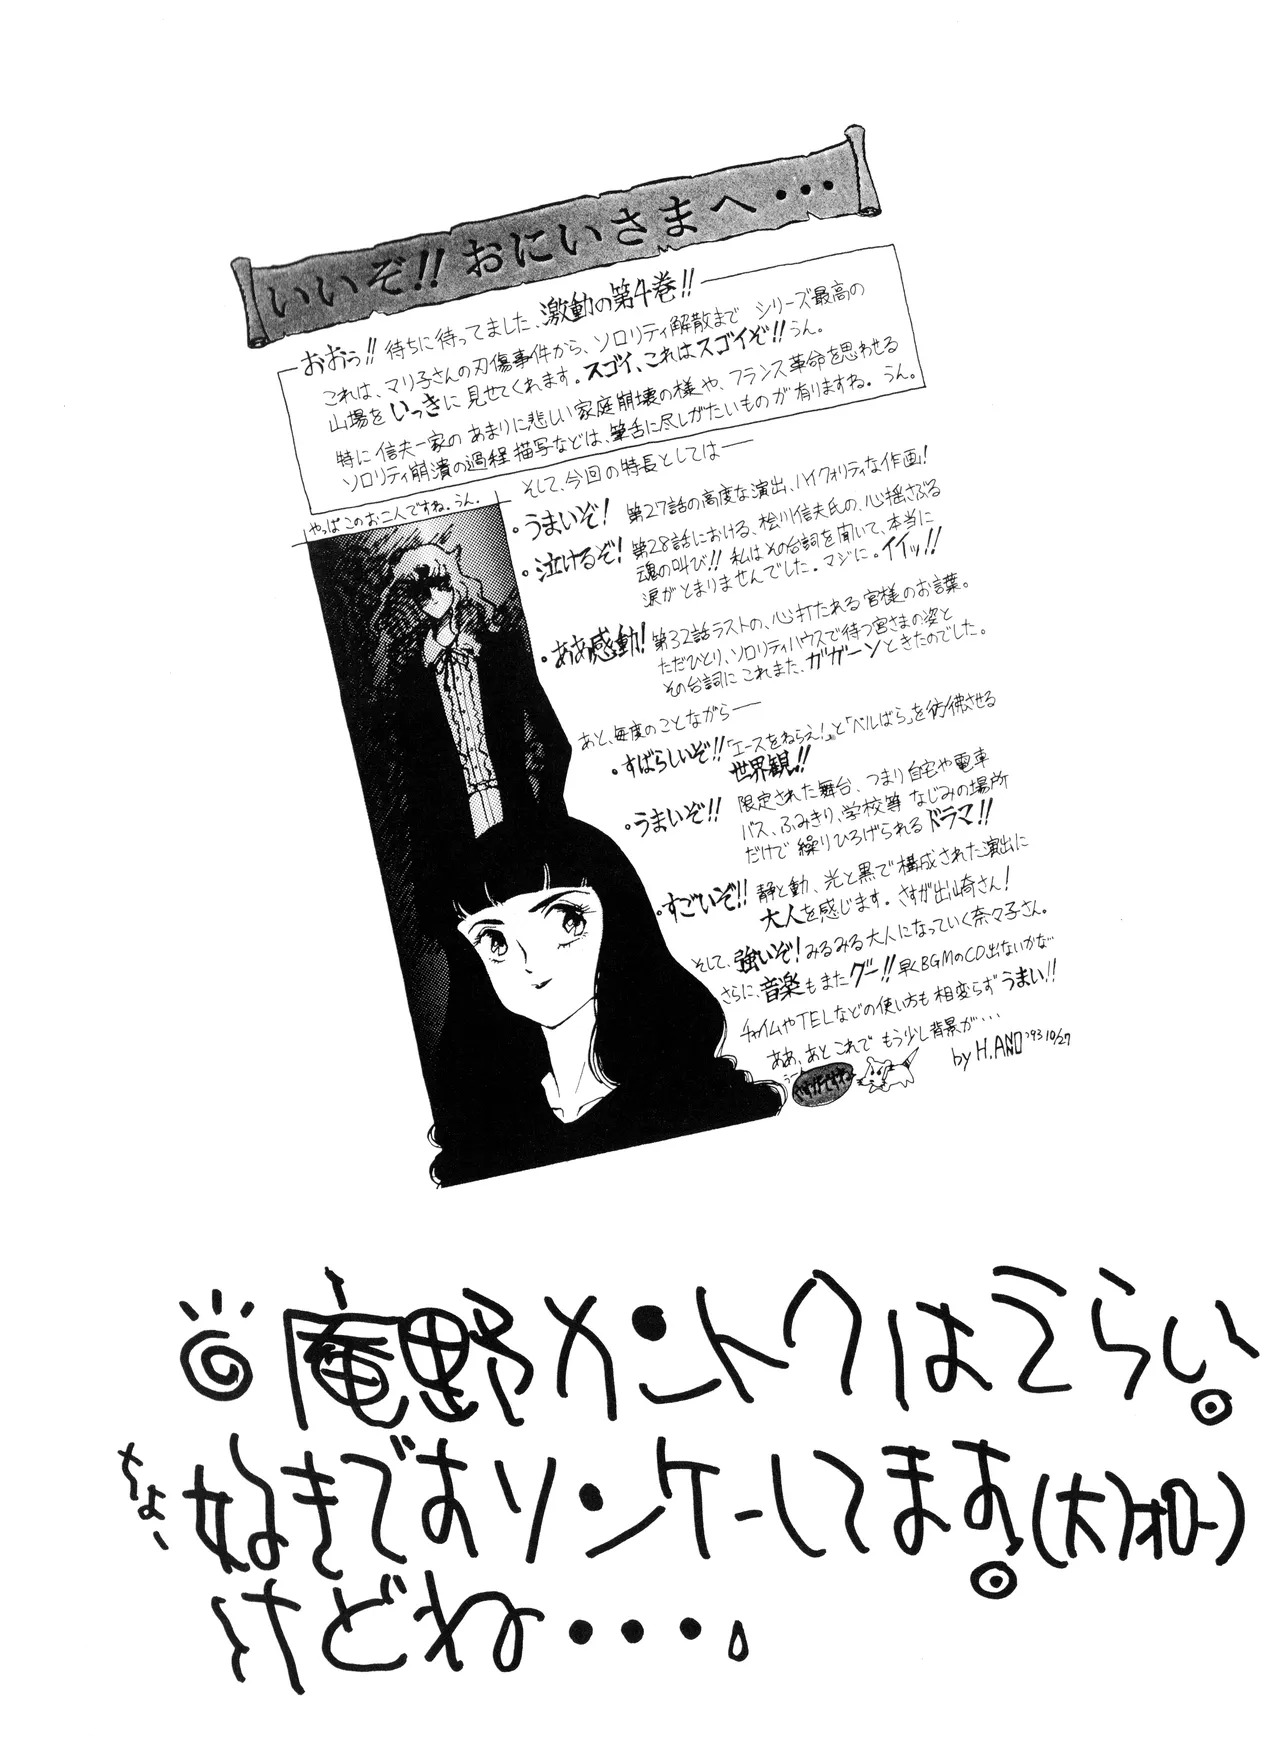 いいぞ!! おにいさまへ・・・
おおっ!! 待ちに待ってました、激動の第4巻!!
これは、マリ子さんの刃傷事件から、ソロリティ解散まで シリーズ最高の
山場を いっきに 見せてくれます。スゴイ、これはスゴイぞ!! うん。
特に 信夫一家の あまりに悲しい 家庭崩壊の様や、フランス革命を思わせる
ソロリティ崩潰の過程 描写などは、筆舌に尽しがたいものが 有りますね。うん。
やっぱこのお二人ですね。うん。
そして、今回の特長としては──
・うまいぞ! 第27話の高度な演出、ハイクォリティな作画!
・泣けるぞ! 第28話における、桧川信夫氏の、心揺さぶる
魂の叫び!! 私はその台詞を聞いて、本当に
涙がとまりませんでした。マジに。イイッ!!
・ああ感動! 第32話ラストの、心打たれる 宮様のお言葉。
ただひとり、ソロリティハウスで待つ宮さまの姿と
その台詞に これまた、ガガーンときたのでした。
あと、毎度のことながら──
・すばらしいぞ!! 「エースをねらえ!」と「ベルばら」を彷彿させる
世界観!!
・うまいぞ!! 限定された舞台、つまり自宅や電車
バス、ふみきり、学校等 なじみの場所
だけで 繰りひろげられるドラマ!!
・すごいぞ!! 静と動、光と黒で構成された演出に
大人を感じます。さすが出崎さん!
そして、強いぞ! みるみる大人になっていく奈々子さん。
さらに、音楽もまたグー!! 早くBGMのCD出ないかな
チャイムやTELなどの使い方も 相変らず うまい!!
ああ、あと これで もう少し背景が・・・
by H.ANNO '93 10/27
庵野カントクはえらい。
ちょー好きですソンケーしてます。(大)オロー)
けどね・・・。